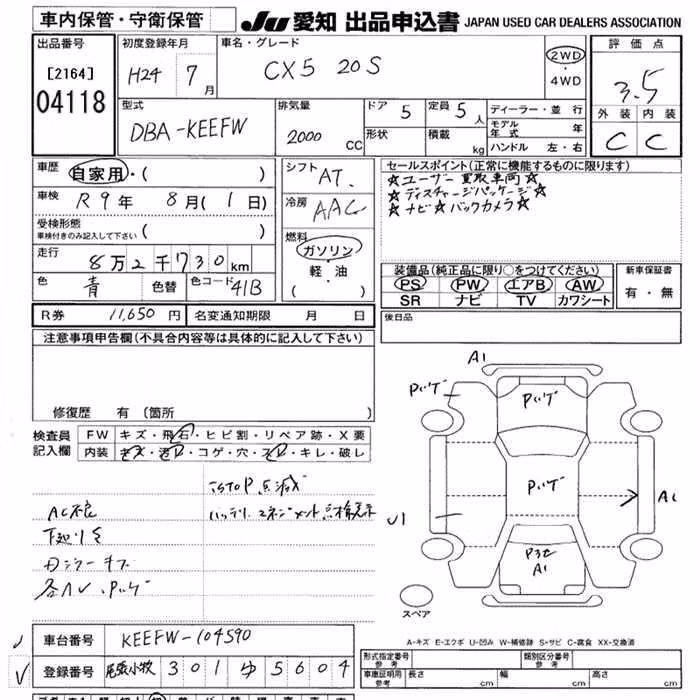 車内保管・守衛保管
JU 愛知 出品申込書 JAPAN USED CAR DEALERS ASSOCIATION
出品番号
[2164]
04118
初度登録年月
H24 7月
車名・グレード
CX5 20S
2WD
・
4WD
評価点
3.5
外装 内装
C C
型式
DBA-KEEFW
排気量
2000 CC
ドア 5
定員 5人
形状
積載 kg
ディーラー・並行
モデル年式 年
ハンドル 左・右
車歴 自家用・( )
車検 R9年 8月(1日)
受検形態
車検付きのみ記入して下さい ( )
走行 8万2千730km
色 青 色替 色コード 41B
シフト AT.
冷房 AAC
燃料
ガソリン
軽・油
( )
セールスポイント(正常に機能するものに限ります)
☆ユーザー買取車両☆
☆ディスチャージパッケージ☆
☆ナビ☆バックカメラ☆
装備品(純正品に限り○をつけてください)
PS PW エアB AW
SR ナビ TV カワシート
新車保証書
有・無
R券 11,650円 名変通知期限 月 日
後日品
注意事項申告欄(不具合内容等は具体的に記入して下さい)
修復歴 有〔箇所 〕
検査員記入欄
FW キズ・飛石・ヒビ割・リペア跡・X要
内装 キズ・汚レ・コゲ・穴・スレ・キレ・破レ
iSTOP点滅
AC不良
バッテリーマネジメント点検表示
下廻りサ
Dミラーキズ
各AU、Pハゲ
A1
Pハゲ
Pハゲ
Pハゲ
A1
U1
Pヨゼ
A1
スペア
A-キズ E-エクボ U-凹み W-補修跡 S-サビ C-腐食 XX-交換済
車台番号 KEEFW-104590
登録番号 尾張小牧 301 ゆ 5604
形式指定番号 参考
類別区分番号 参考
車庫証明用 参考 長さ cm 幅 cm 高さ cm